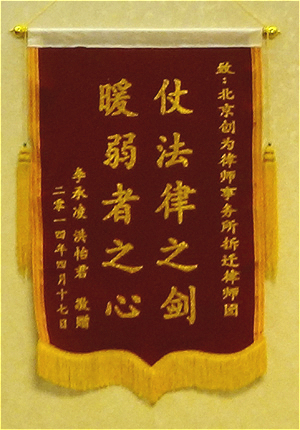 致：北京创为律师事务所拆迁律师团
仗法律之剑
暖弱者之心
李承凌 洪怡君 敬赠
二零一四年四月十七日